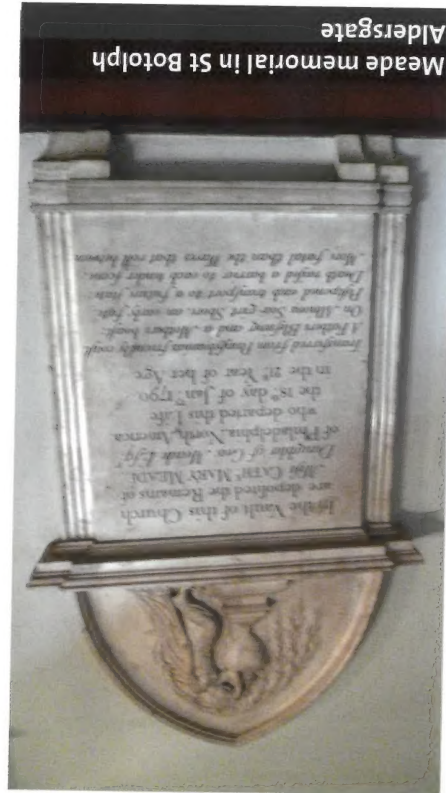 In the Vault of this Church
are deposited the Remains of
Miss CATHE MARY MEADE
Daughter of Geo. Meade Esqr
of Philadelphia, North America
who departed this Life
the 18th day of Jany 1790
in the 21st Year of her Age
Transferred from Pensylvanias friendly coast,
A Fathers Blessing and a Mothers boast,
On Albions Sea-girt Shore, an early fate
Postponed each transport to a future state
Death raised a barrier to each tender scene,
More fatal than the Waves that roll between.
Meade memorial in St Botolph
Aldersgate